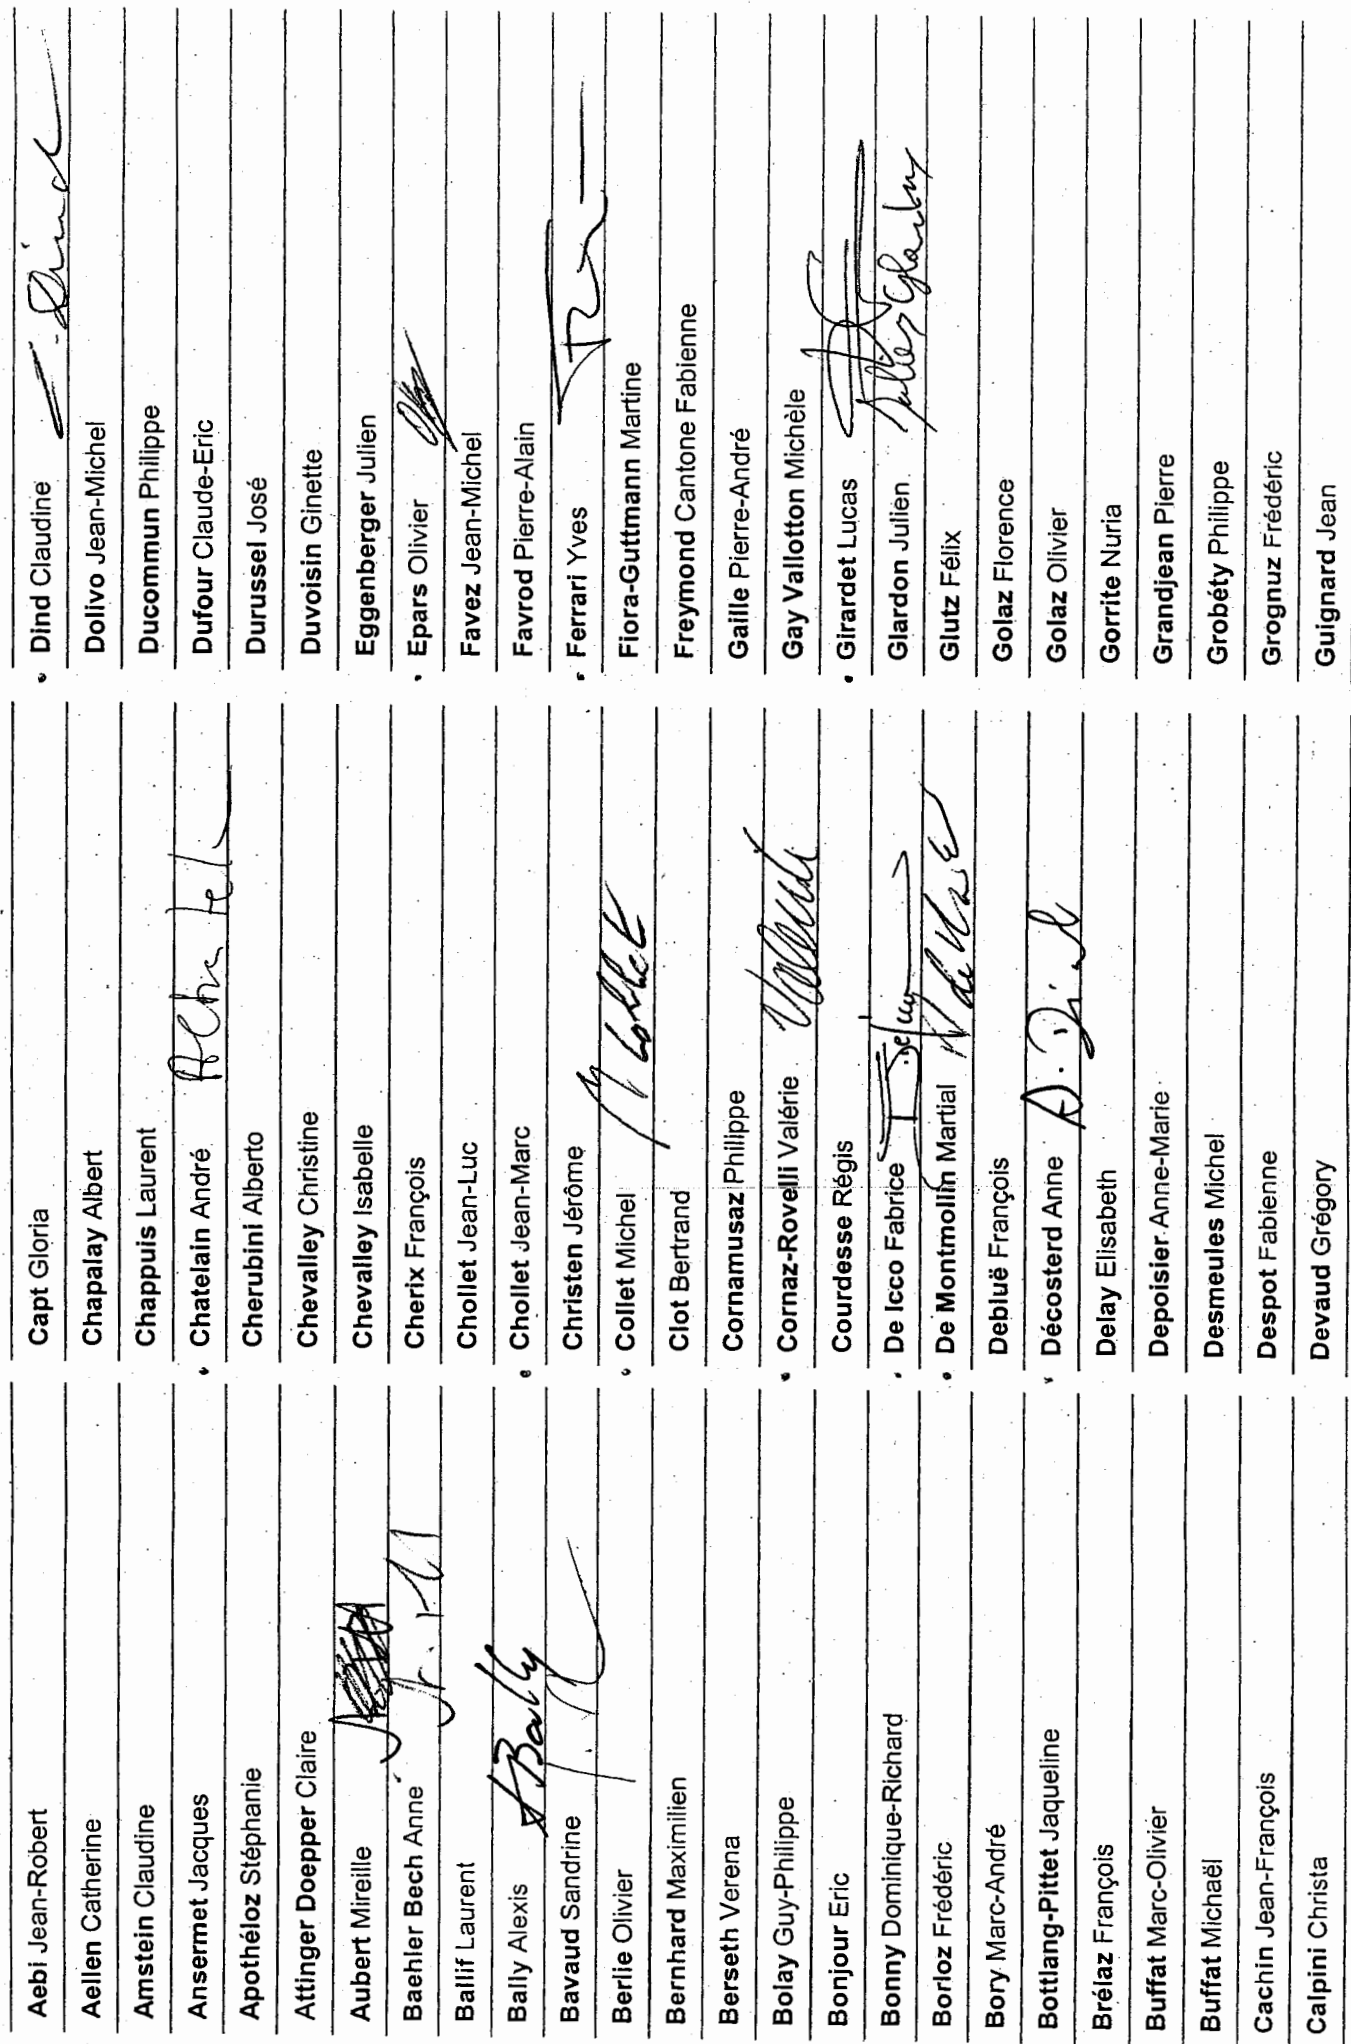 Aebi Jean-Robert
Aellen Catherine
Amstein Claudine
Ansermet Jacques
Apothéloz Stéphanie
Attinger Doepper Claire
Aubert Mireille
Baehler Bech Anne
Ballif Laurent
Bally Alexis ABally
Bavaud Sandrine
Berlie Olivier
Bernhard Maximilien
Berseth Verena
Bolay Guy-Philippe
Bonjour Eric
Bonny Dominique-Richard
Borloz Frédéric
Bory Marc-André
Bottlang-Pittet Jaqueline
Brélaz François
Buffat Marc-Olivier
Buffat Michaël
Cachin Jean-François
Calpini Christa
Capt Gloria
Chapalay Albert
Chappuis Laurent
Chatelain André
Cherubini Alberto
Chevalley Christine
Chevalley Isabelle
Cherix François
Chollet Jean-Luc
Chollet Jean-Marc
Christen Jérôme
Collet Michel
Clot Bertrand
Cornamusaz Philippe
Cornaz-Rovelli Valérie
Courdesse Régis
De Icco Fabrice
De Montmollin Martial
Debluë François
Décosterd Anne
Delay Elisabeth
Depoisier Anne-Marie
Desmeules Michel
Despot Fabienne
Devaud Grégory
Dind Claudine
Dolivo Jean-Michel
Ducommun Philippe
Dufour Claude-Eric
Durussel José
Duvoisin Ginette
Eggenberger Julien
Epars Olivier
Favez Jean-Michel
Favrod Pierre-Alain
Ferrari Yves
Fiora-Guttmann Martine
Freymond Cantone Fabienne
Gaille Pierre-André
Gay Vallotton Michèle
Girardet Lucas
Glardon Julien
Glutz Félix
Golaz Florence
Golaz Olivier
Gorrite Nuria
Grandjean Pierre
Grobéty Philippe
Grognuz Frédéric
Guignard Jean